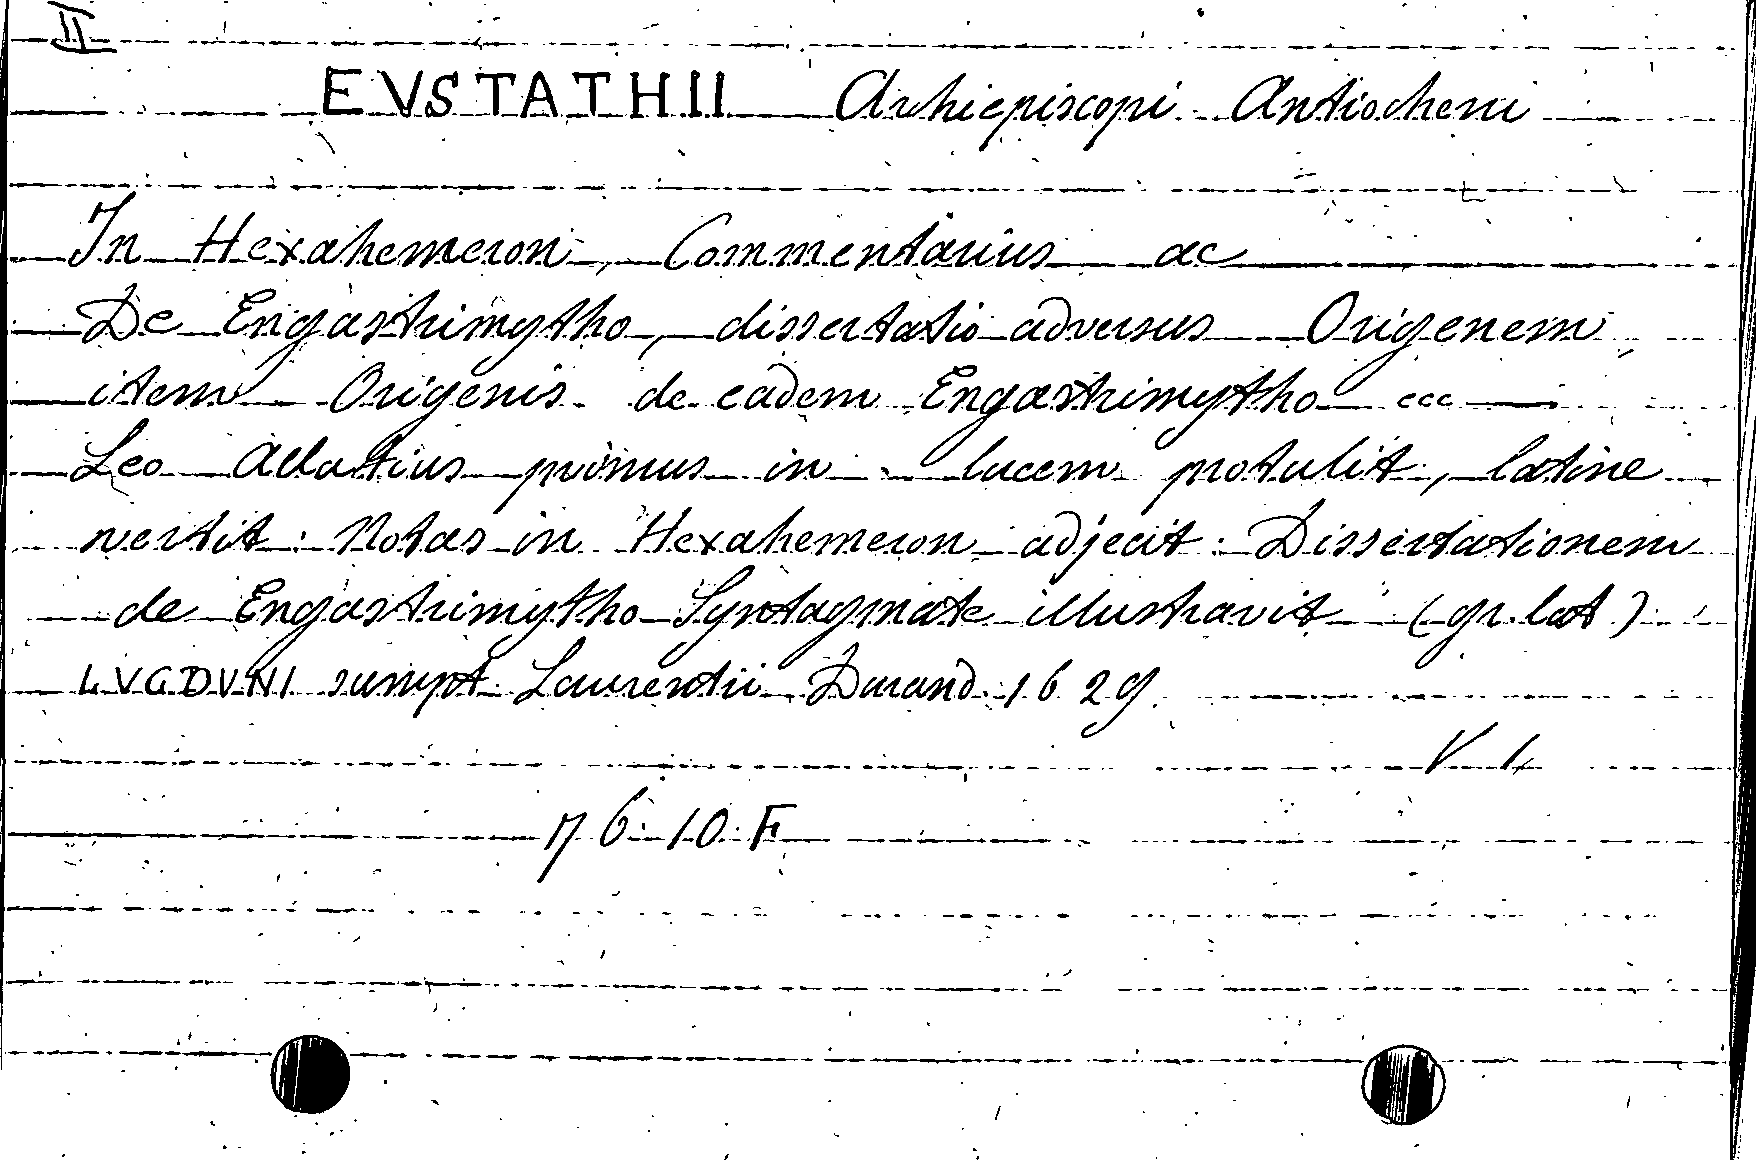 II
EVSTATHII Archiepiscopi Antiocheni
In Hexahemeron, Commentarius ac
De Engastrimytho, dissertatio adversus Origenem,
item Origenis de eadem Engastrimytho ccc
Leo Allatius primus in lucem protulit, latine
vertit. Notas in Hexahemeron adjecit. Dissertationem
de Engastrimytho Syntagmate illustravit (gr. lat)
LVGDVNI sumpt. Laurentii Durand. 1629.
76.10.F